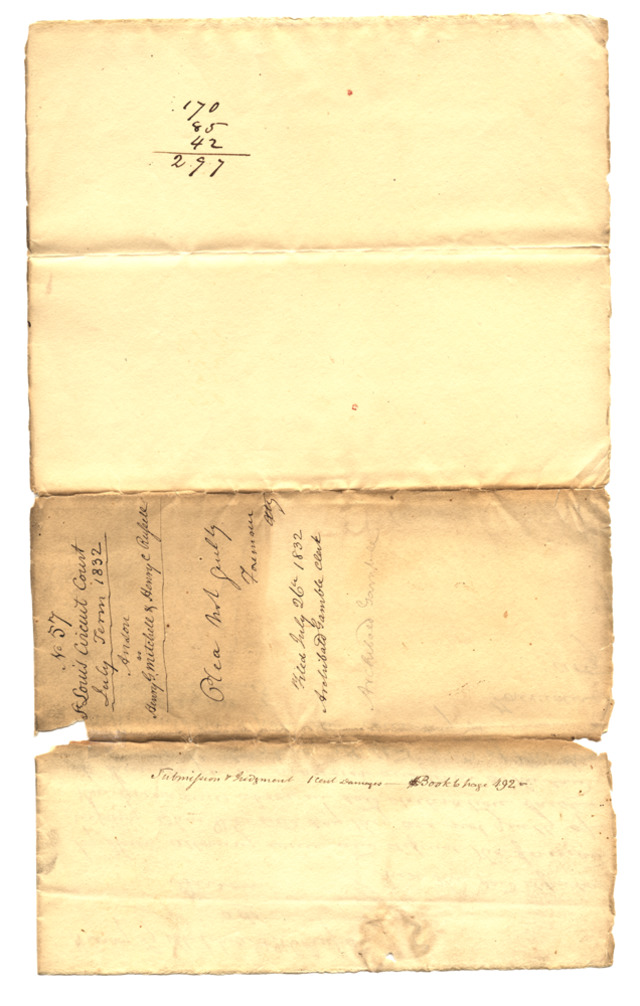 170
85
42
297
No 57
St Louis Circuit Court
July Term 1832
Anson
vs
Henry G. Mitchell & Henry C Russell
Plea Not guilty
atty
Filed July 26th 1832
Archibald Gamble Clerk
Archibald Gamble
Submission & Judgment 1 Cent Damages — Book 6 page 492 —